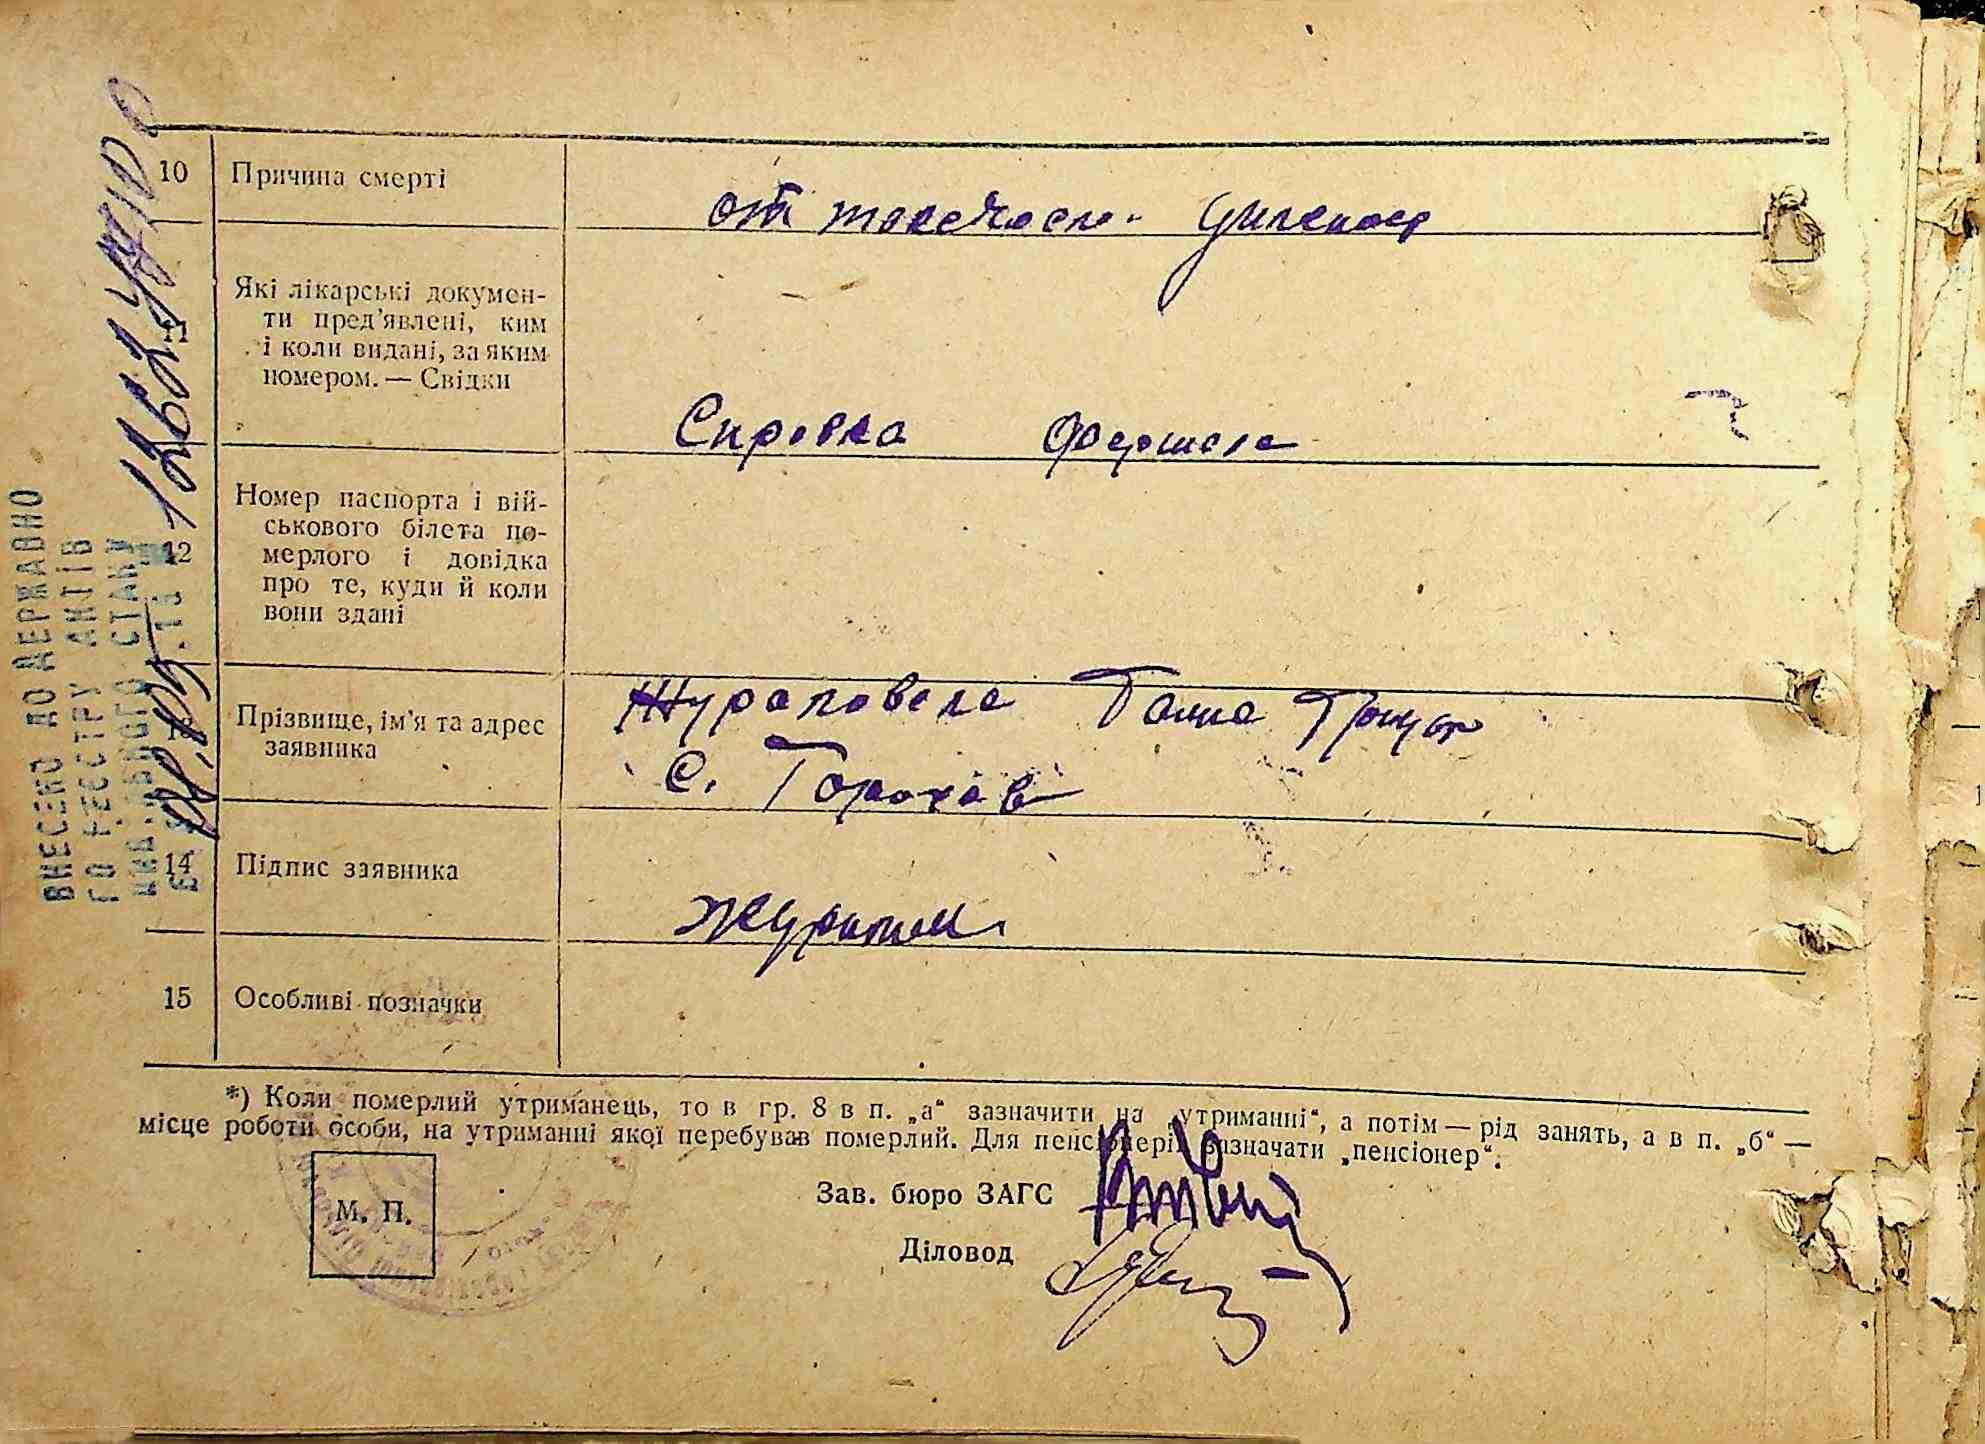 10 Причина смерті
от
11 Які лікарські докумен-
ти пред'явлені, ким
і коли видані, за яким
номером. — Свідки
Справка фершела
12 Номер паспорта і вій-
ськового білета по-
мерлого і довідка
про те, куди й коли
вони здані
13 Прізвище, ім'я та адрес
заявника
Ганна
с. Горохів
14 Підпис заявника
15 Особливі позначки
*) Коли померлий утриманець, то в гр. 8 в п. „а“ зазначити на „утриманні“, а потім — рід занять, а в п. „б“ —
місце роботи особи, на утриманні якої перебував померлий. Для пенсіонерів зазначати „пенсіонер“.
М. П.
Зав. бюро ЗАГС
Діловод
ВНЕСЕНО ДО ДЕРЖАВНО
ГО РЕЄСТРУ АКТІВ
ЦИВІЛЬНОГО СТАНУ